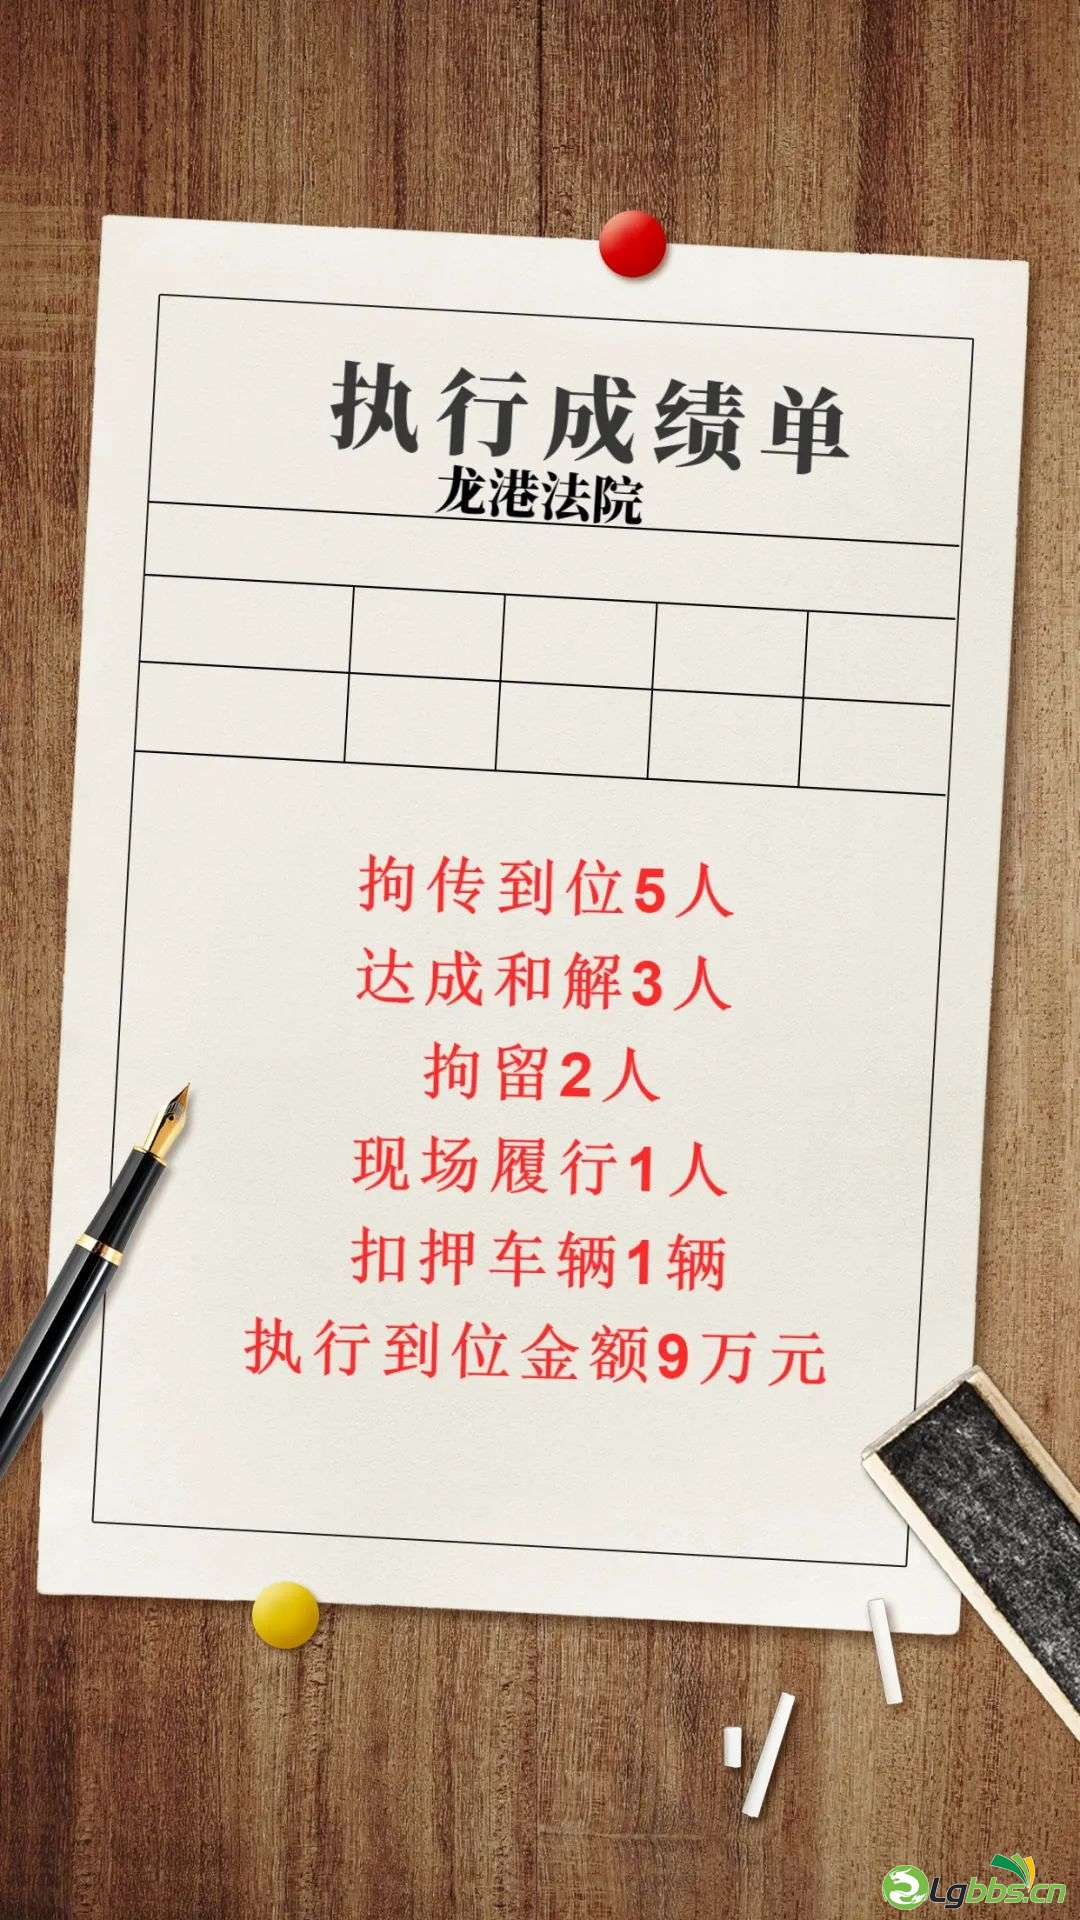 执行成绩单
龙港法院
拘传到位5人
达成和解3人
拘留2人
现场履行1人
扣押车辆1辆
执行到位金额9万元
Lgbbs.cn